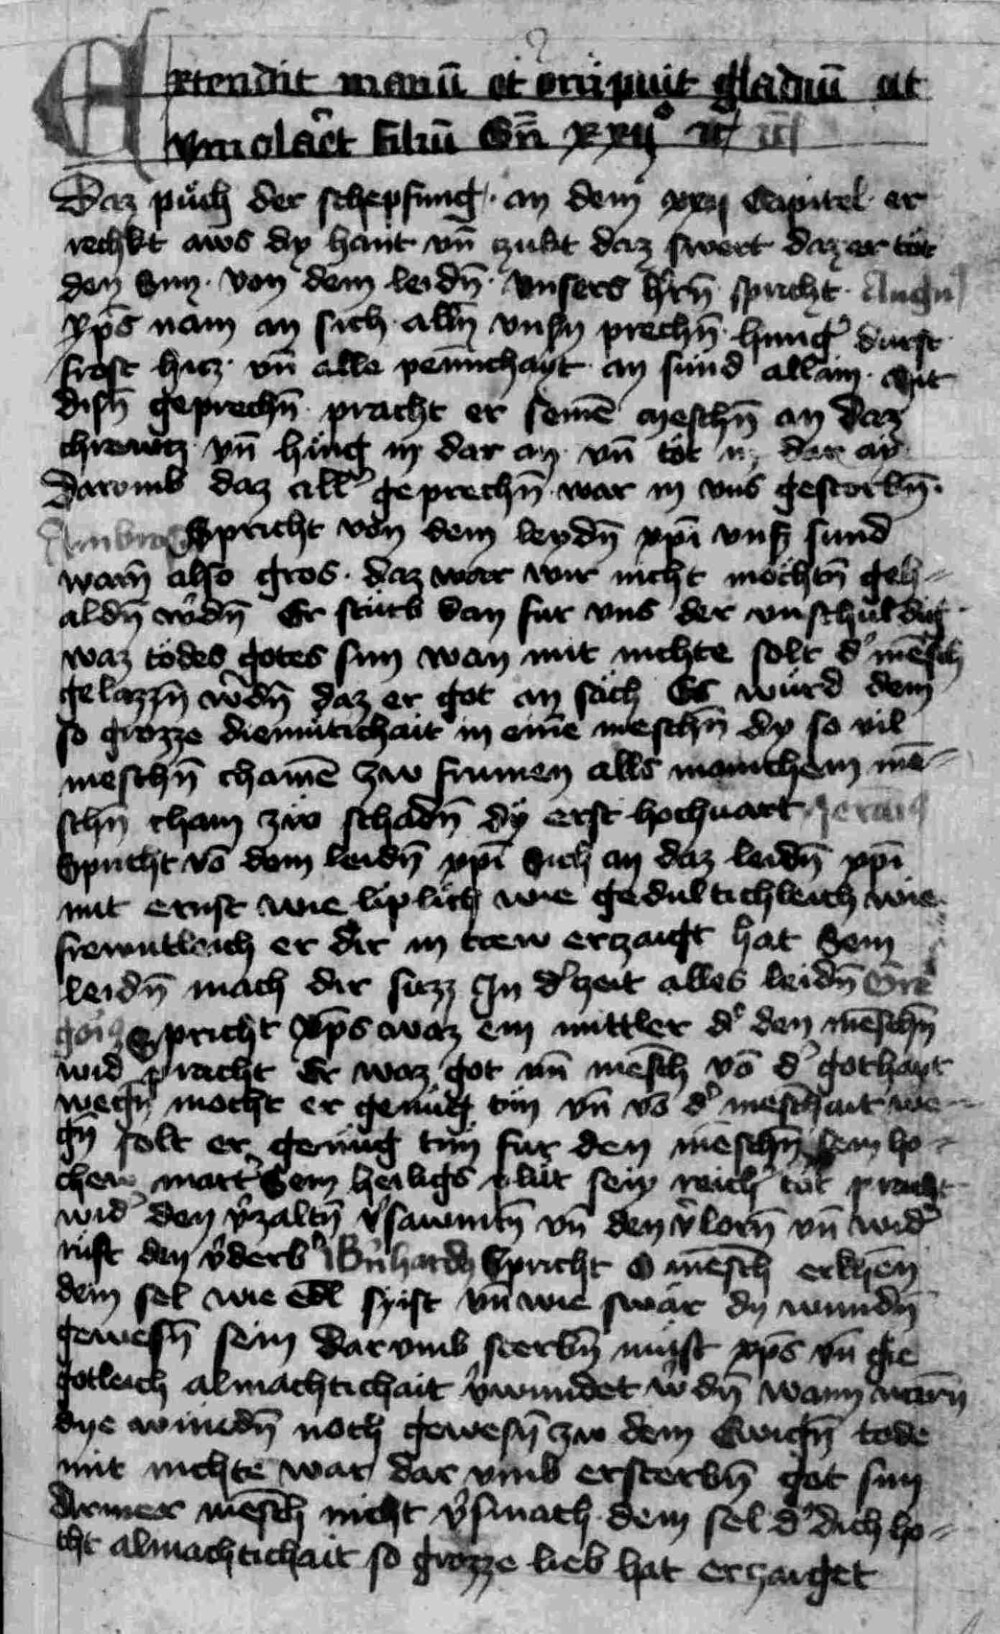 Extendit manū et arripuit gladiū ut
ymolaret filiū Gn̄ xxijº
Daz půch der schepfung · an dem xxij Capitel · er
rechkt aws dy hant vn̄ zukt daz swert daz er töt
den Sun · von dem leidn̄ · vnsers hrn̄ spricht · Augu
xp̄s nam an sich · alln̄ vnsn̄ prechn̄ · hung̛ durst
frost hicz · vn̄ alle peinichayt · an sünd allain · Mit
disn̄ geprechn̄ · pracht er seinē meschn̄ an daz
chrewtz · vn̄ hing in dar an · vn̄ töt in dar an
Darumb daz all̛ geprechn̄ · war in vns gestorbn̄ ·
Ambro Spricht von dem leydn̄ xp̄i vns̛ sund
warn̄ also gros · daz war wir nicht mochtn̄ geh=
aldn̄ w̛dn̄ Er sturb dan fur vns der vnschuldig
waz todes gotes sun wan mit nichte solt d̛ mēsch
gelazzn̄ w̛dn̄ daz er got an sach Es wurd dem
so grozze diemutichait in eine meschn̄ dy so vil
meschn̄ chamē zw frumen alls manichem mē=
schn̄ cham zw schadn̄ dy erst hochuart Jeroni9
Spricht vō dem leidn̄ xp̄i Sich an daz leidn̄ xp̄i
mit ernst wie liplich wie gedultichleich wie
frewntleich er dir in trew erzaigt hat Sein
leidn̄ mach dir suzz In d̛ zeit alles leidn̄ Gre
gori9 Spricht xp̄s waz ein mittler d̛ den mēschn̄
wid̛ pracht Er waz got vn̄ mēsch vō d̛ gothayt
wegn̄ mocht er genug tun vn̄ vō d̛ meschait we=
gn̄ solt er genüg tun fur den meschn̄ sein ho=
chew mart̛ Sein heiligs plüt sein reich̛ tot pracht
wid̛ den v̛zaltn̄ v̛sawmtn̄ vn̄ den v̛lorn̄ vn̄ wid̛
rüft den v̛derb̛ Bn̛hardy Spricht O mēsch erkēn
dein sel wie edl sy ist vn̄ wie swär dy wundn̄
gewesn̄ sein Dar vmb sterbn̄ muist xp̄s vn̄ die
gotleich almachtichait v̛wundet w̛dn̄ wann warn̄
dye wundn̄ noch gewesn̄ zw dem Ewign̄ tode
mit nichte war dar vmb ersterbn̄ got sun
Armer mesch nicht v̛smach dem sel d̛ dich ho=
cht almachtichait so grozze lieb hat erzaiget